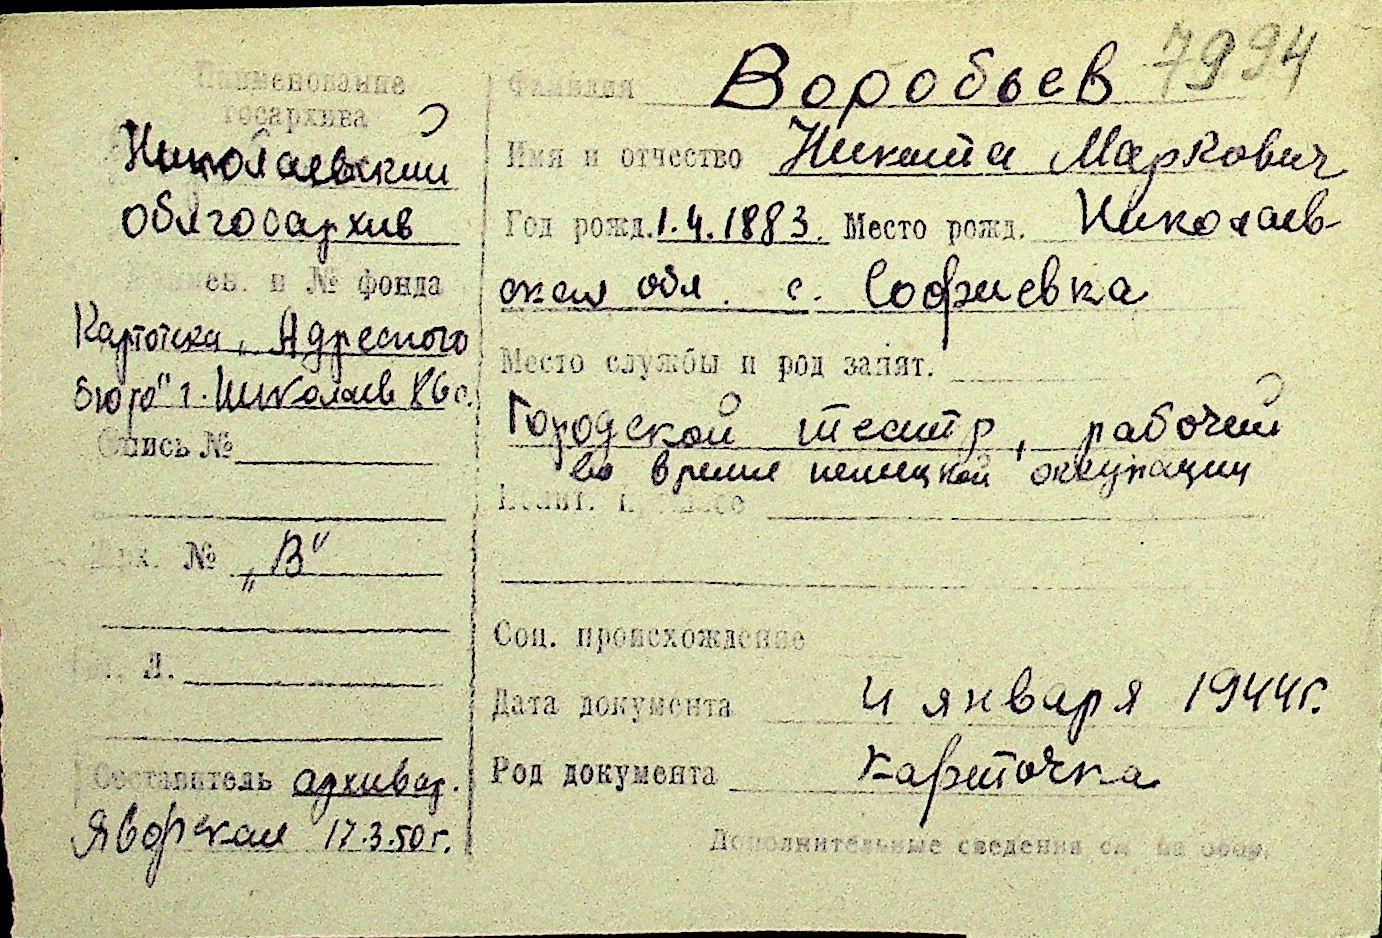 7994
Наименование
госархива
Николаевский
облгосархив
Наимен. и № фонда
Картотека „Адресного
бюро" г. Николаев
Опись №
Арх. № „В"
Л.
Составитель архивар.
Яворская 17.3.50г.
Фамилия Воробьев
Имя и отчество Никита Маркович
Год рожд. 1.4.1883. Место рожд. Николаев-
ская обл. с. Софиевка
Место службы и род занят.
Городской театр, рабочий
во время немецкой оккупации
Соц. происхождение
Дата документа 4 января 1944г.
Род документа карточка
Дополнительные сведения см. на обор.